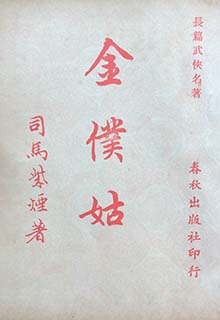 長篇武俠名著
金僕姑
司馬紫煙著
春秋出版社印行